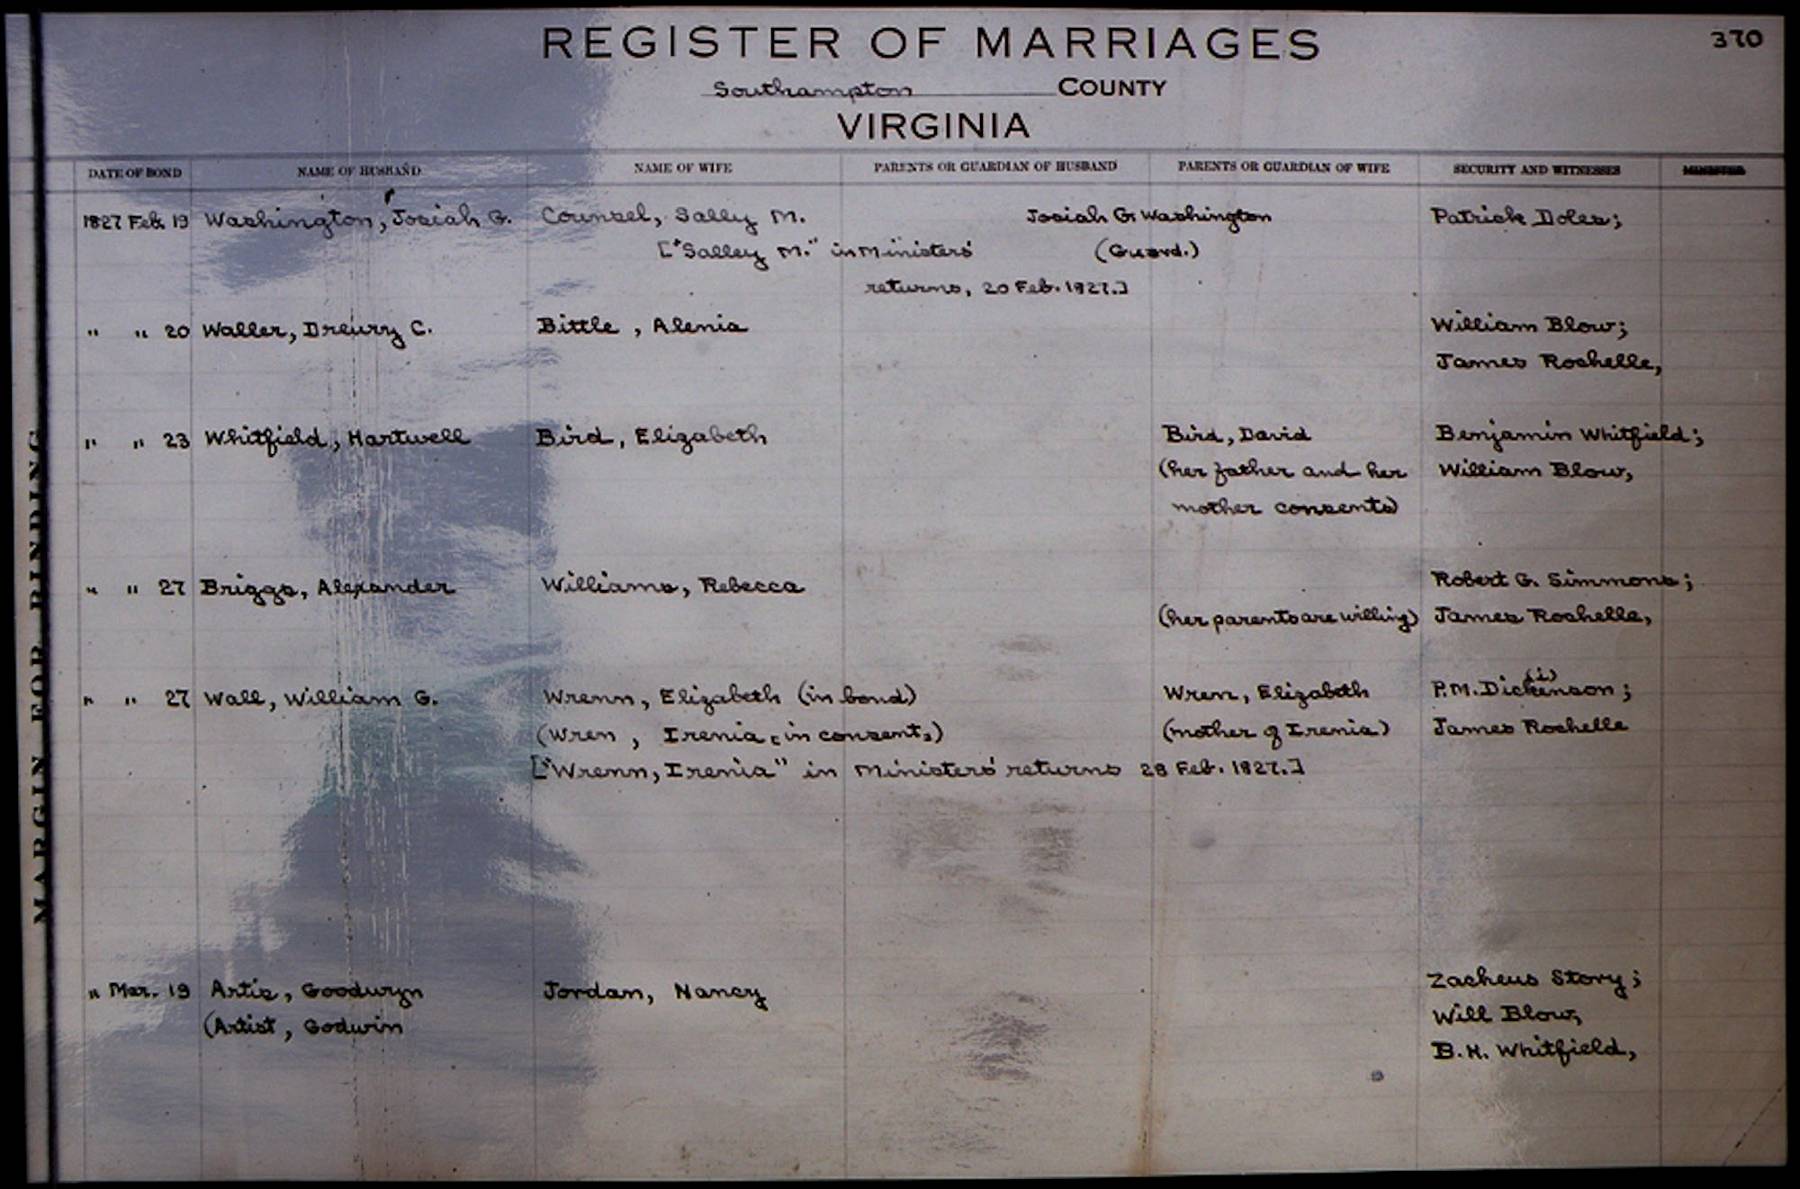 REGISTER OF MARRIAGES
370
Southampton COUNTY
VIRGINIA
DATE OF BOND NAME OF HUSBAND NAME OF WIFE PARENTS OR GUARDIAN OF HUSBAND PARENTS OR GUARDIAN OF WIFE SECURITY AND WITNESSES MINISTER
1827 Feb. 19 Washington, Josiah G. Counsel, Sally M. Josiah G. Washington Patrick Doles;
["Salley M." in Ministers' (Guard.)
returns, 20 Feb. 1827.]
" " 20 Waller, Drewry C. Bittle , Alenia William Blow;
James Rochelle,
" " 23 Whitfield, Hartwell Bird, Elizabeth Bird, David Benjamin Whitfield;
(her father and her William Blow,
mother consents)
" " 27 Briggs, Alexander Williams, Rebecca Robert G. Simmons;
(her parents are willing) James Rochelle,
" " 27 Wall, William G. Wrenn, Elizabeth (in bond) Wren, Elizabeth P.M. Dickenson (i);
(Wren , Irenia, in consent,) (mother of Irenia) James Rochelle
["Wrenn, Irenia" in Ministers' returns 28 Feb. 1827.]
" Mar. 19 Artis, Goodwyn Jordan, Nancy Zacheus Story;
(Artist, Godwin Will Blow,
B.H. Whitfield,
MARGIN FOR BINDING